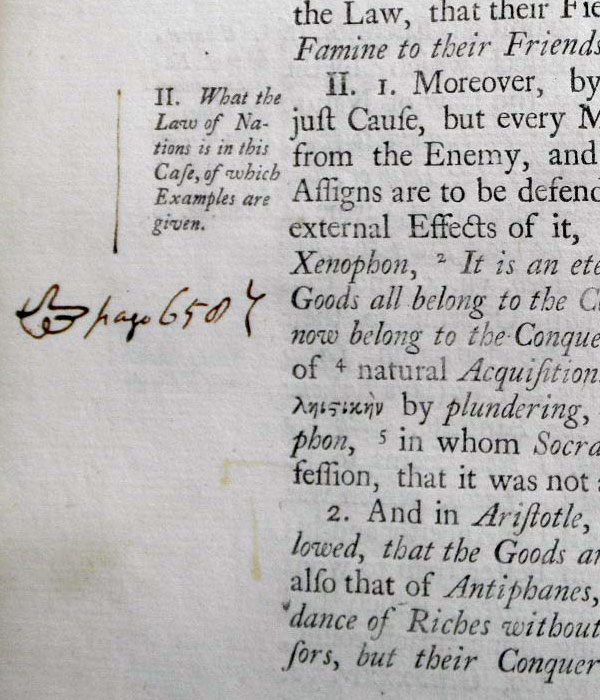 the Law, that their Fie
Famine to their Friends
II. 1. Moreover, by
juſt Cauſe, but every M
from the Enemy, and
Aſſigns are to be defend
external Effects of it,
Xenophon, ² It is an ete
Goods all belong to the C
now belong to the Conque
of ⁴ natural Acquiſition
ληιςικὴν by plundering,
phon, ⁵ in whom Socra
feſſion, that it was not a
2. And in Ariſtotle,
lowed, that the Goods ar
alſo that of Antiphanes,
dance of Riches without
ſors, but their Conquer
II. What the
Law of Na-
tions is in this
Caſe, of which
Examples are
given.
page 658